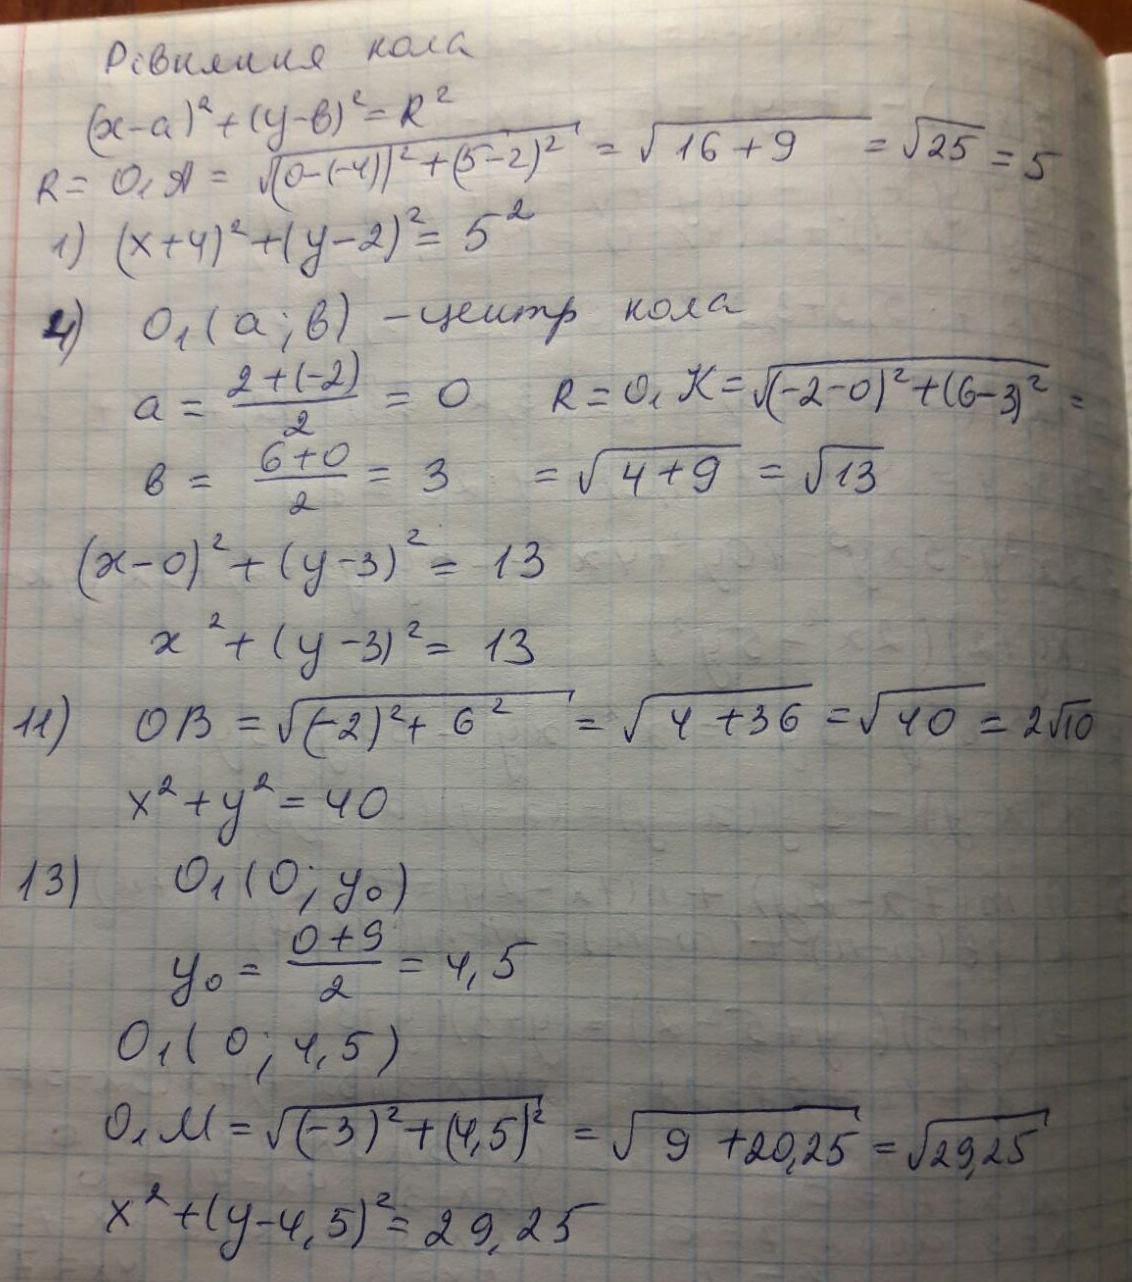 Рівняння кола
(x-a)² + (y-в)² = R²
R = O₁A = √(0-(-4))² + (5-2)² = √16+9 = √25 = 5
1) (x+4)² + (y-2)² = 5²
4) O₁(a; в) - центр кола
a = (2+(-2))/2 = 0 R = O₁K = √(-2-0)² + (6-3)² =
в = (6+0)/2 = 3 = √4+9 = √13
(x-0)² + (y-3)² = 13
x² + (y-3)² = 13
11) OB = √(-2)² + 6² = √4+36 = √40 = 2√10
x² + y² = 40
13) O₁(0; y₀)
y₀ = (0+9)/2 = 4,5
O₁(0; 4,5)
O₁M = √(-3)² + (4,5)² = √9+20,25 = √29,25
x² + (y-4,5)² = 29,25